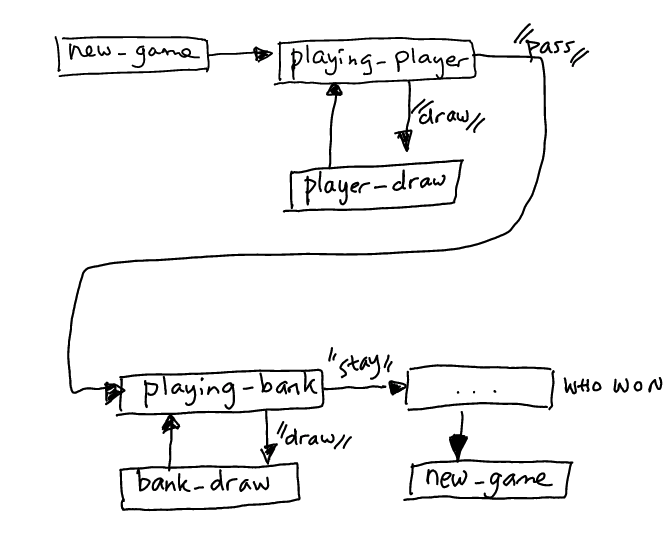 new_game
playing_player
"pass"
"draw"
player_draw
playing_bank
"stay"
...
WHO WON
"draw"
bank_draw
new_game